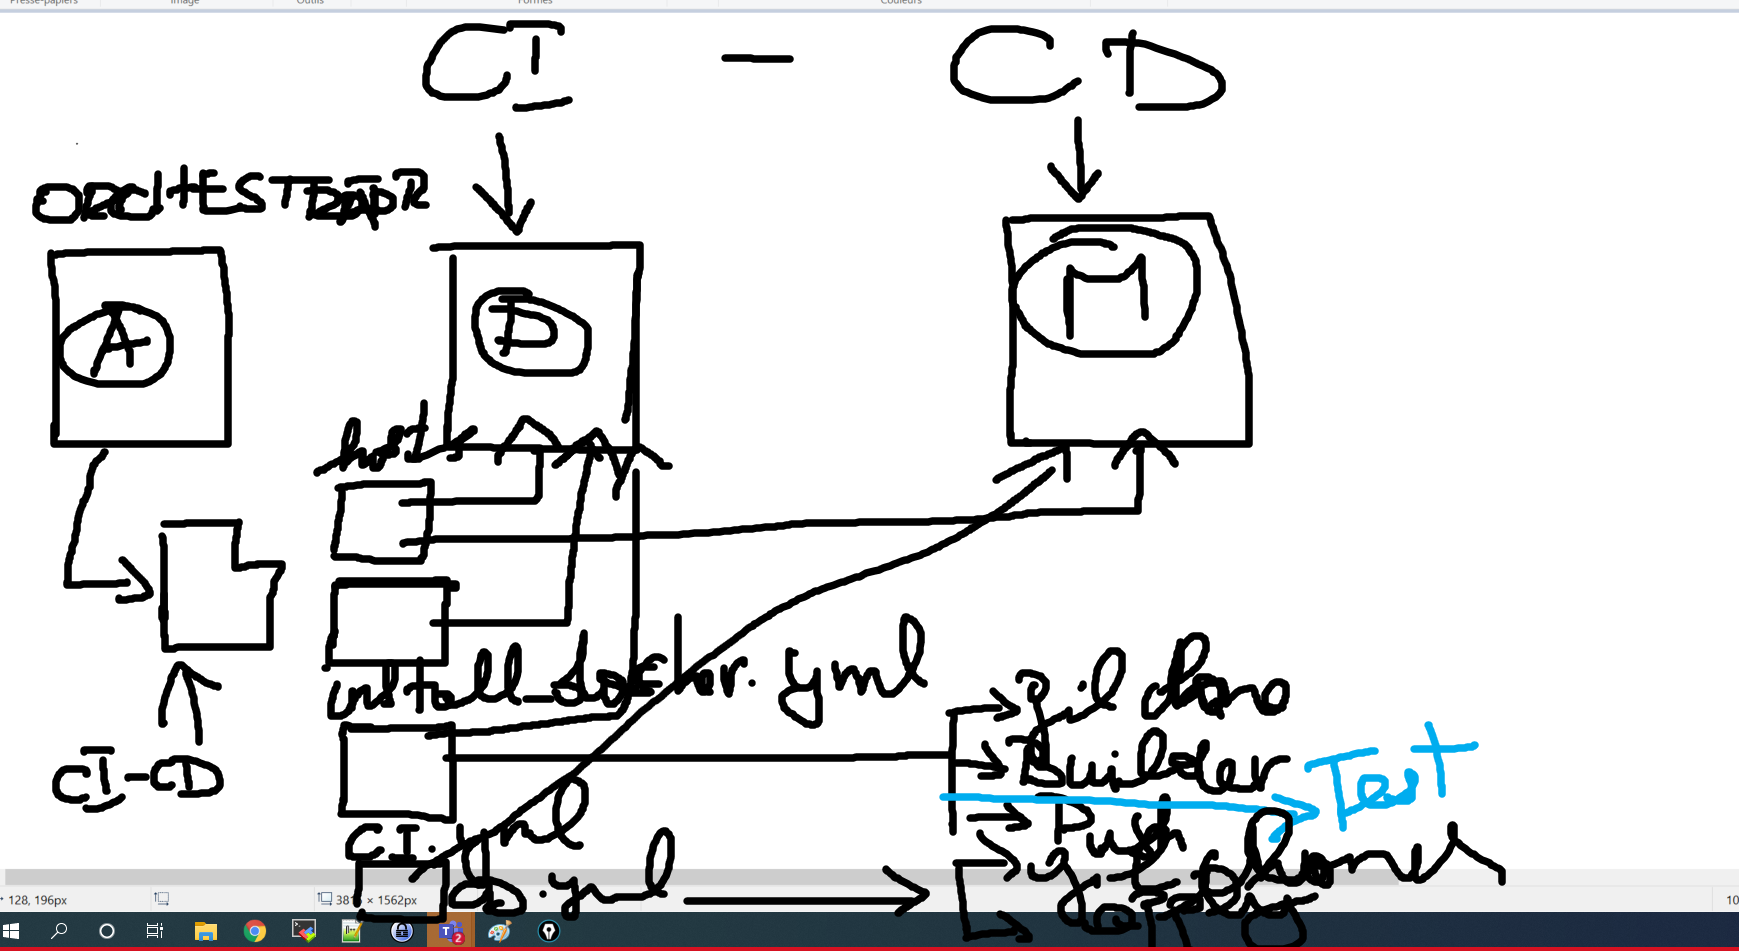 Presse-papiers Image Outils Formes Couleurs
CI - CD
A
D
M
host
install_docker.yml
CI-CD
CI.yml
git clone
Builder
Test
Push
git cloner
128, 196px
× 1562px
10
T 2